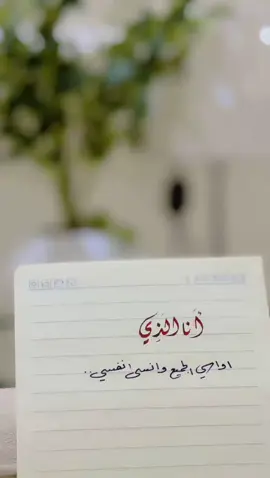 أَنا الَذِي
اواسي الجميع وانسى انفسي..